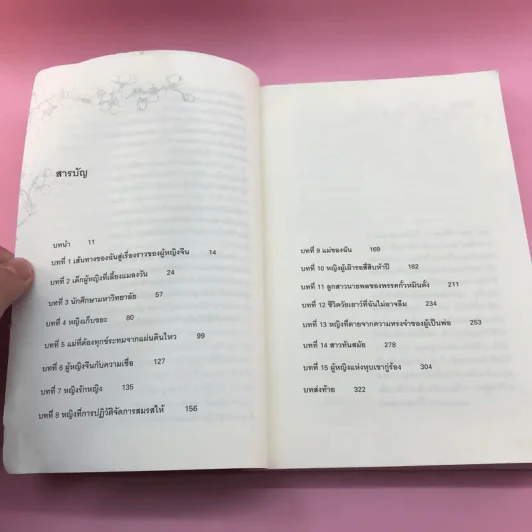 สารบัญ
บทนำ 11
บทที่ 1 เส้นทางของฉันสู่เรื่องราวของผู้หญิงจีน 14
บทที่ 2 เด็กผู้หญิงที่เลี้ยงแมลงวัน 24
บทที่ 3 นักศึกษามหาวิทยาลัย 57
บทที่ 4 หญิงเก็บขยะ 80
บทที่ 5 แม่ที่ต้องทุกข์ระทมจากแผ่นดินไหว 99
บทที่ 6 ผู้หญิงจีนกับความเชื่อ 127
บทที่ 7 หญิงรักหญิง 135
บทที่ 8 หญิงที่การปฏิวัติจัดการสมรสให้ 156
บทที่ 9 แม่ของฉัน 169
บทที่ 10 หญิงผู้เฝ้ารอสี่สิบห้าปี 182
บทที่ 11 ลูกสาวนายพลของพรรคก๊กหมินตั๋ง 211
บทที่ 12 ชีวิตวัยเยาว์ที่ฉันไม่อาจลืม 234
บทที่ 13 หญิงที่ตายจากความทรงจำของผู้เป็นพ่อ 253
บทที่ 14 สาวทันสมัย 278
บทที่ 15 ผู้หญิงแห่งหุบเขากู่ร้อง 304
บทส่งท้าย 322